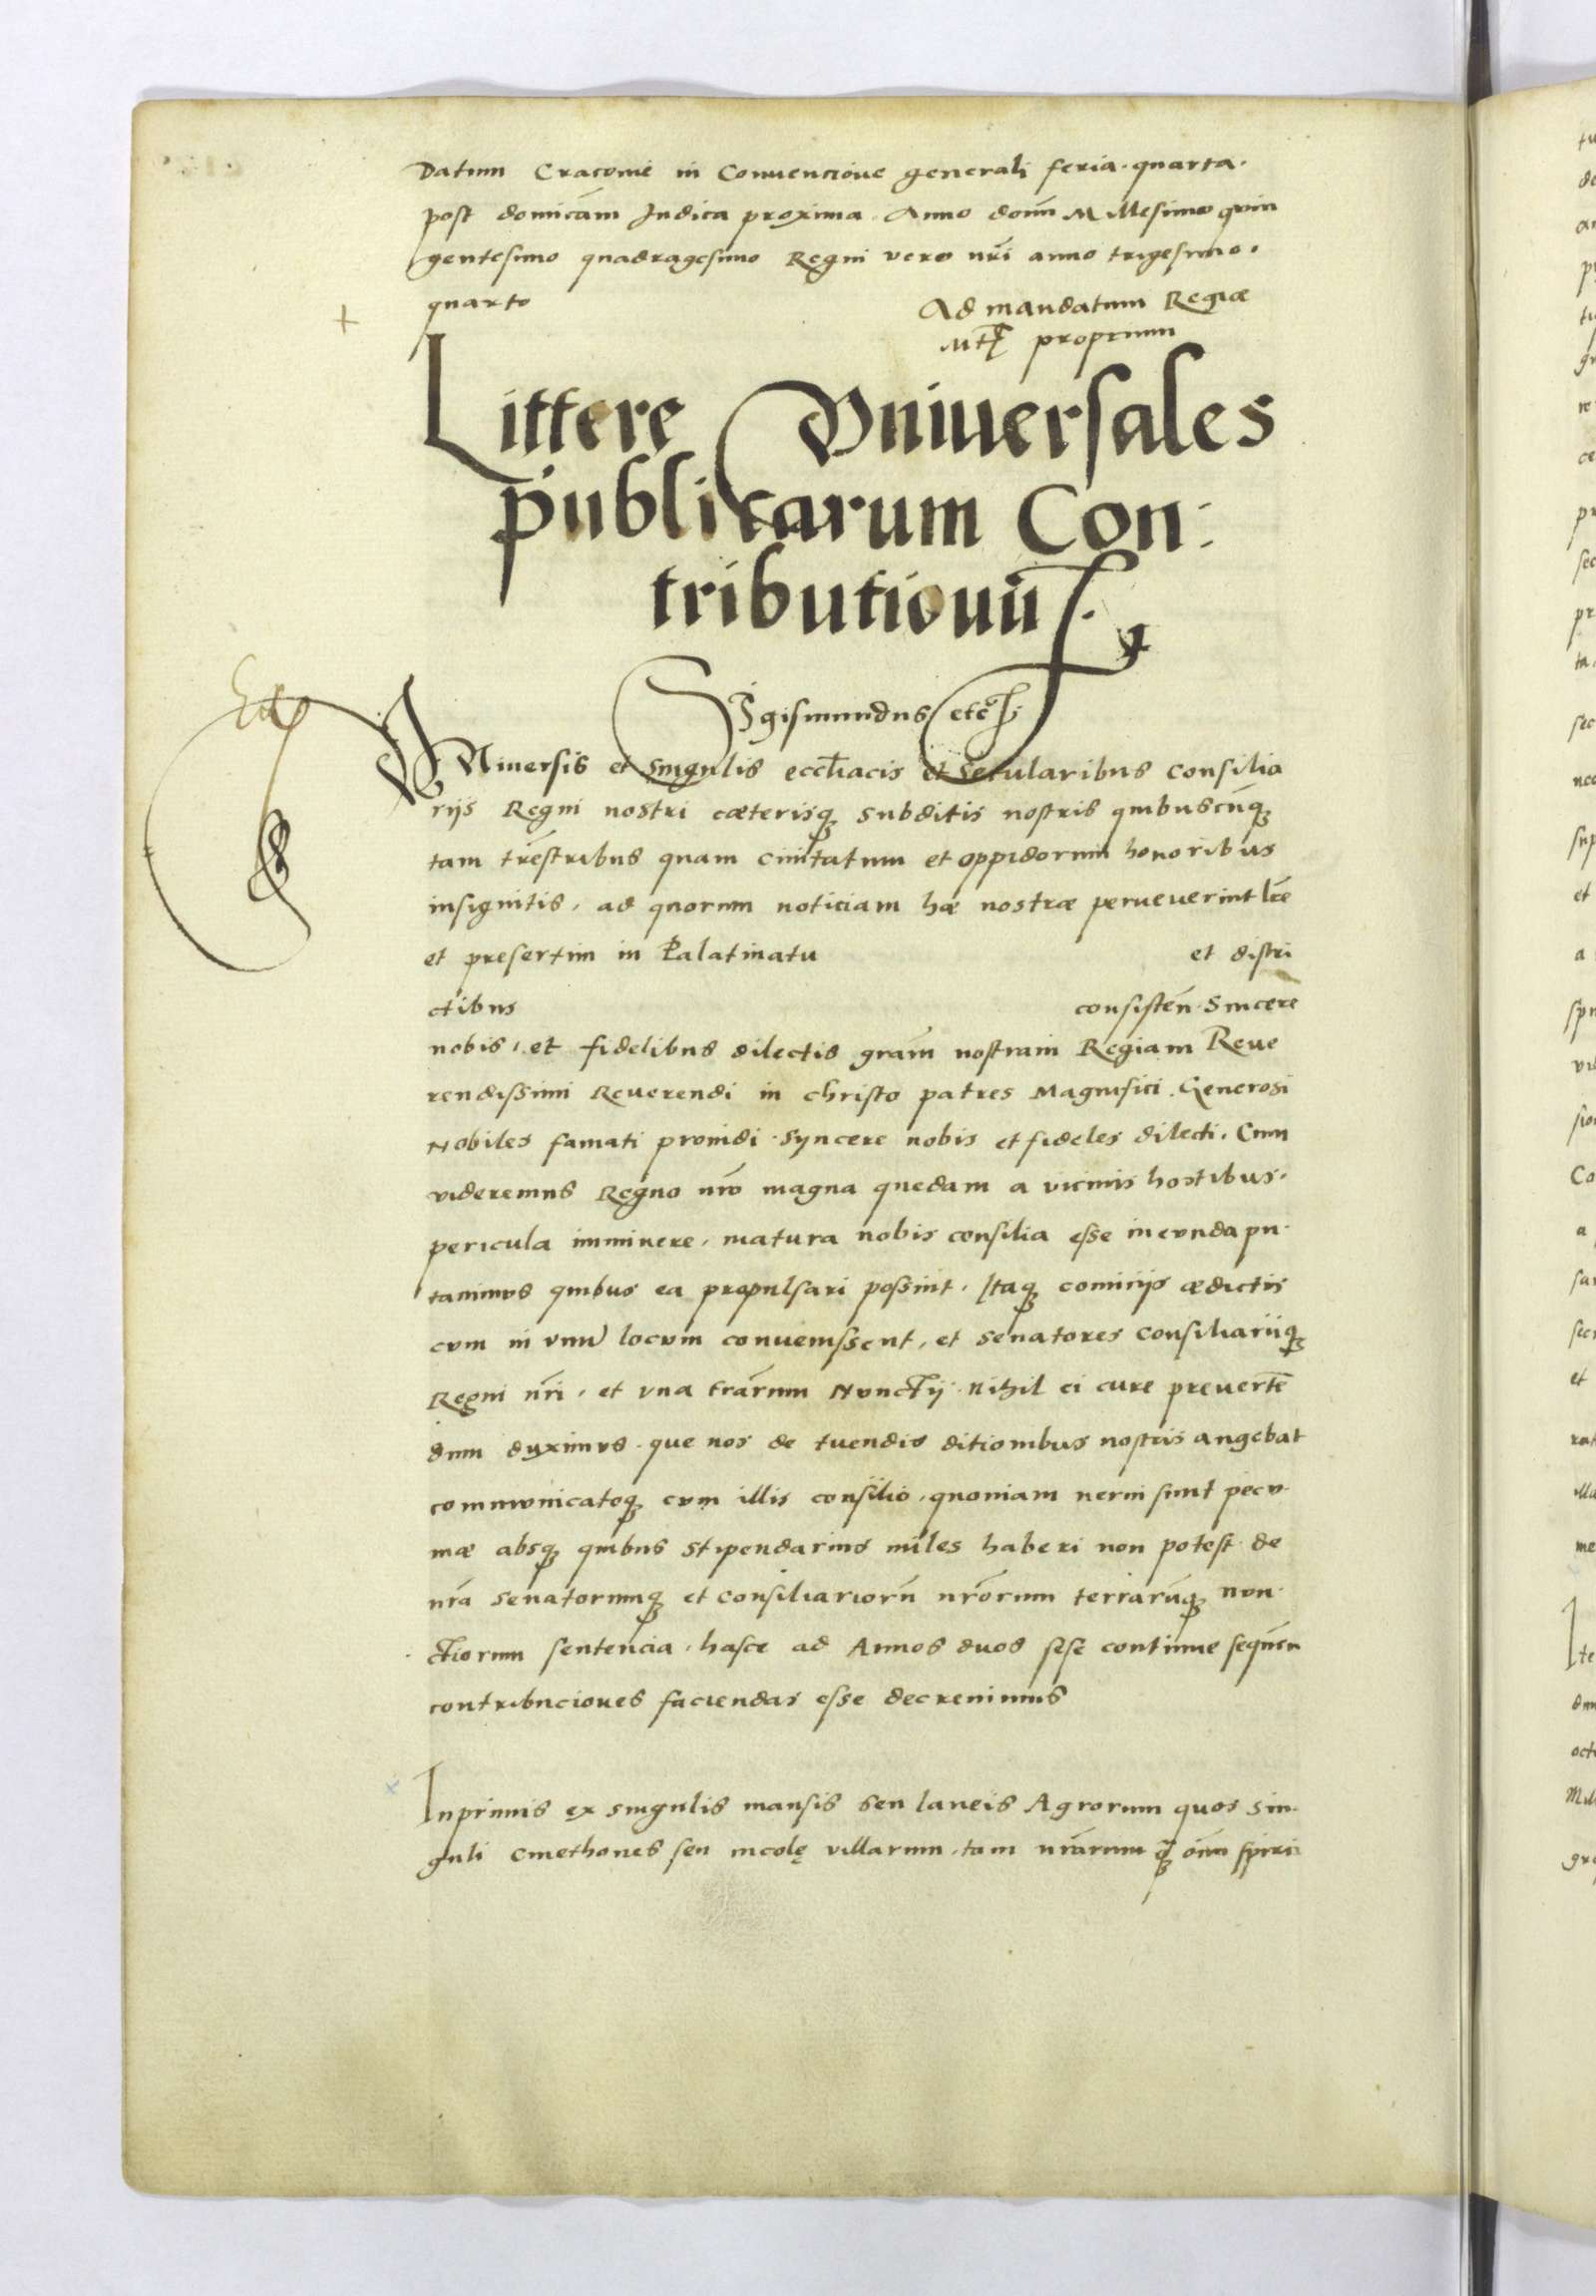 Datum Cracovie in Conventione generali feria quarta.
post domicam Judica proxima. Anno domi Millesimo quin
gentesimo quadragesimo Regni vero nri anno trigesimo.
quarto
Ad mandatum Regiæ
Mtis proprium
Littere Vniuersales
publicarum Con:
tributionū
Sigismundus etc
Vniuersis et singulis eccliacis et secularibus consilia
rijs Regni nostri cæterisq subditis nostris quibuscūq
tam trēstribus quam ciuitatum et oppidorum honoribus
insignitis, ad quorum noticiam hæ nostræ peruenerint lre
et presertim in Palatinatu et distri
ctibus consisteñ. Sincere
nobis, et fidelibus dilectis gram nostram Regiam Reue
rendissimi Reuerendi in christo patres Magnifici. Generosi
Nobiles famati prouidi. Syncere nobis et fideles dilecti. Cum
videremus Regno nro magna quedam a vicinis hostibus.
pericula imminere, matura nobis consilia esse ineunda pu
tauimus quibus ea propulsari possint. Itaq comicijs ædictis
cum in vnū locum conuenissent, et senatores consiliariiq
Regni nri, et vna trarum Nunctij. Nihil ei cure preuerte
dum duximus. que nos de tuendis ditionibus nostris angebat
communicatoq cum illis consilio, quoniam nerui sunt pecu
niæ absq quibus stipendarius miles haberi non potest. de
nra senatorumq et consiliariorū nrorum terrarūq nun
ctiorum sentencia, hasce ad Annos duos sese continue sequen
contribuciones faciendas esse decreuimus
Inprimis ex singulis mansis seu laneis Agrorum quos sin.
guli cmethones seu incolę villarum, tam nrarum q̄ oīm spiri